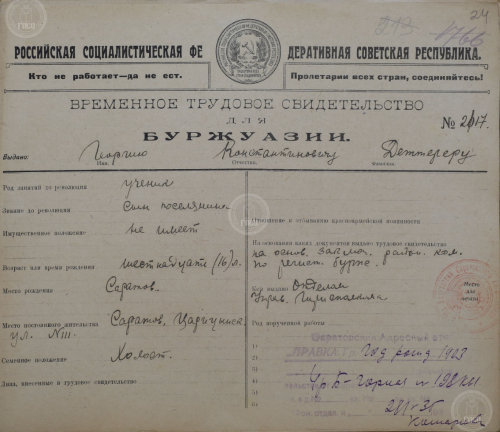 24
РОССИЙСКАЯ СОЦИАЛИСТИЧЕСКАЯ ФЕ ДЕРАТИВНАЯ СОВЕТСКАЯ РЕСПУБЛИКА.
Кто не работает—да не ест. Пролетарии всех стран, соединяйтесь!
ВРЕМЕННОЕ ТРУДОВОЕ СВИДЕТЕЛЬСТВО
ДЛЯ
БУРЖУАЗИИ.
Выдано: Георгию Константиновичу Деттереру
Имя. Отчество. Фамилия.
Род занятий до революции ученик
Звание до революции сын поселянина
Имущественное положение не имеет
Возраст или время рождения шестнадцати (16) л.
Место рождения Саратов.
Место постоянного жительства Саратов, Царицынск.
ул. №111.
Семейное положение Холост.
Лица, внесенные в трудовое свидетельство
Отношение к отбыванию красноармейской повинности
На основании каких документов выдано трудовое свидетельство
на основ. район. ком.
по регист. бурж.
Кем выдано отделом
Управ. Горисполкома
Место для печати
Род порученной работы
1)
2)
3)
4)
5)
6)
Саратовский Адресный
СПРАВКА Год рожд 1903